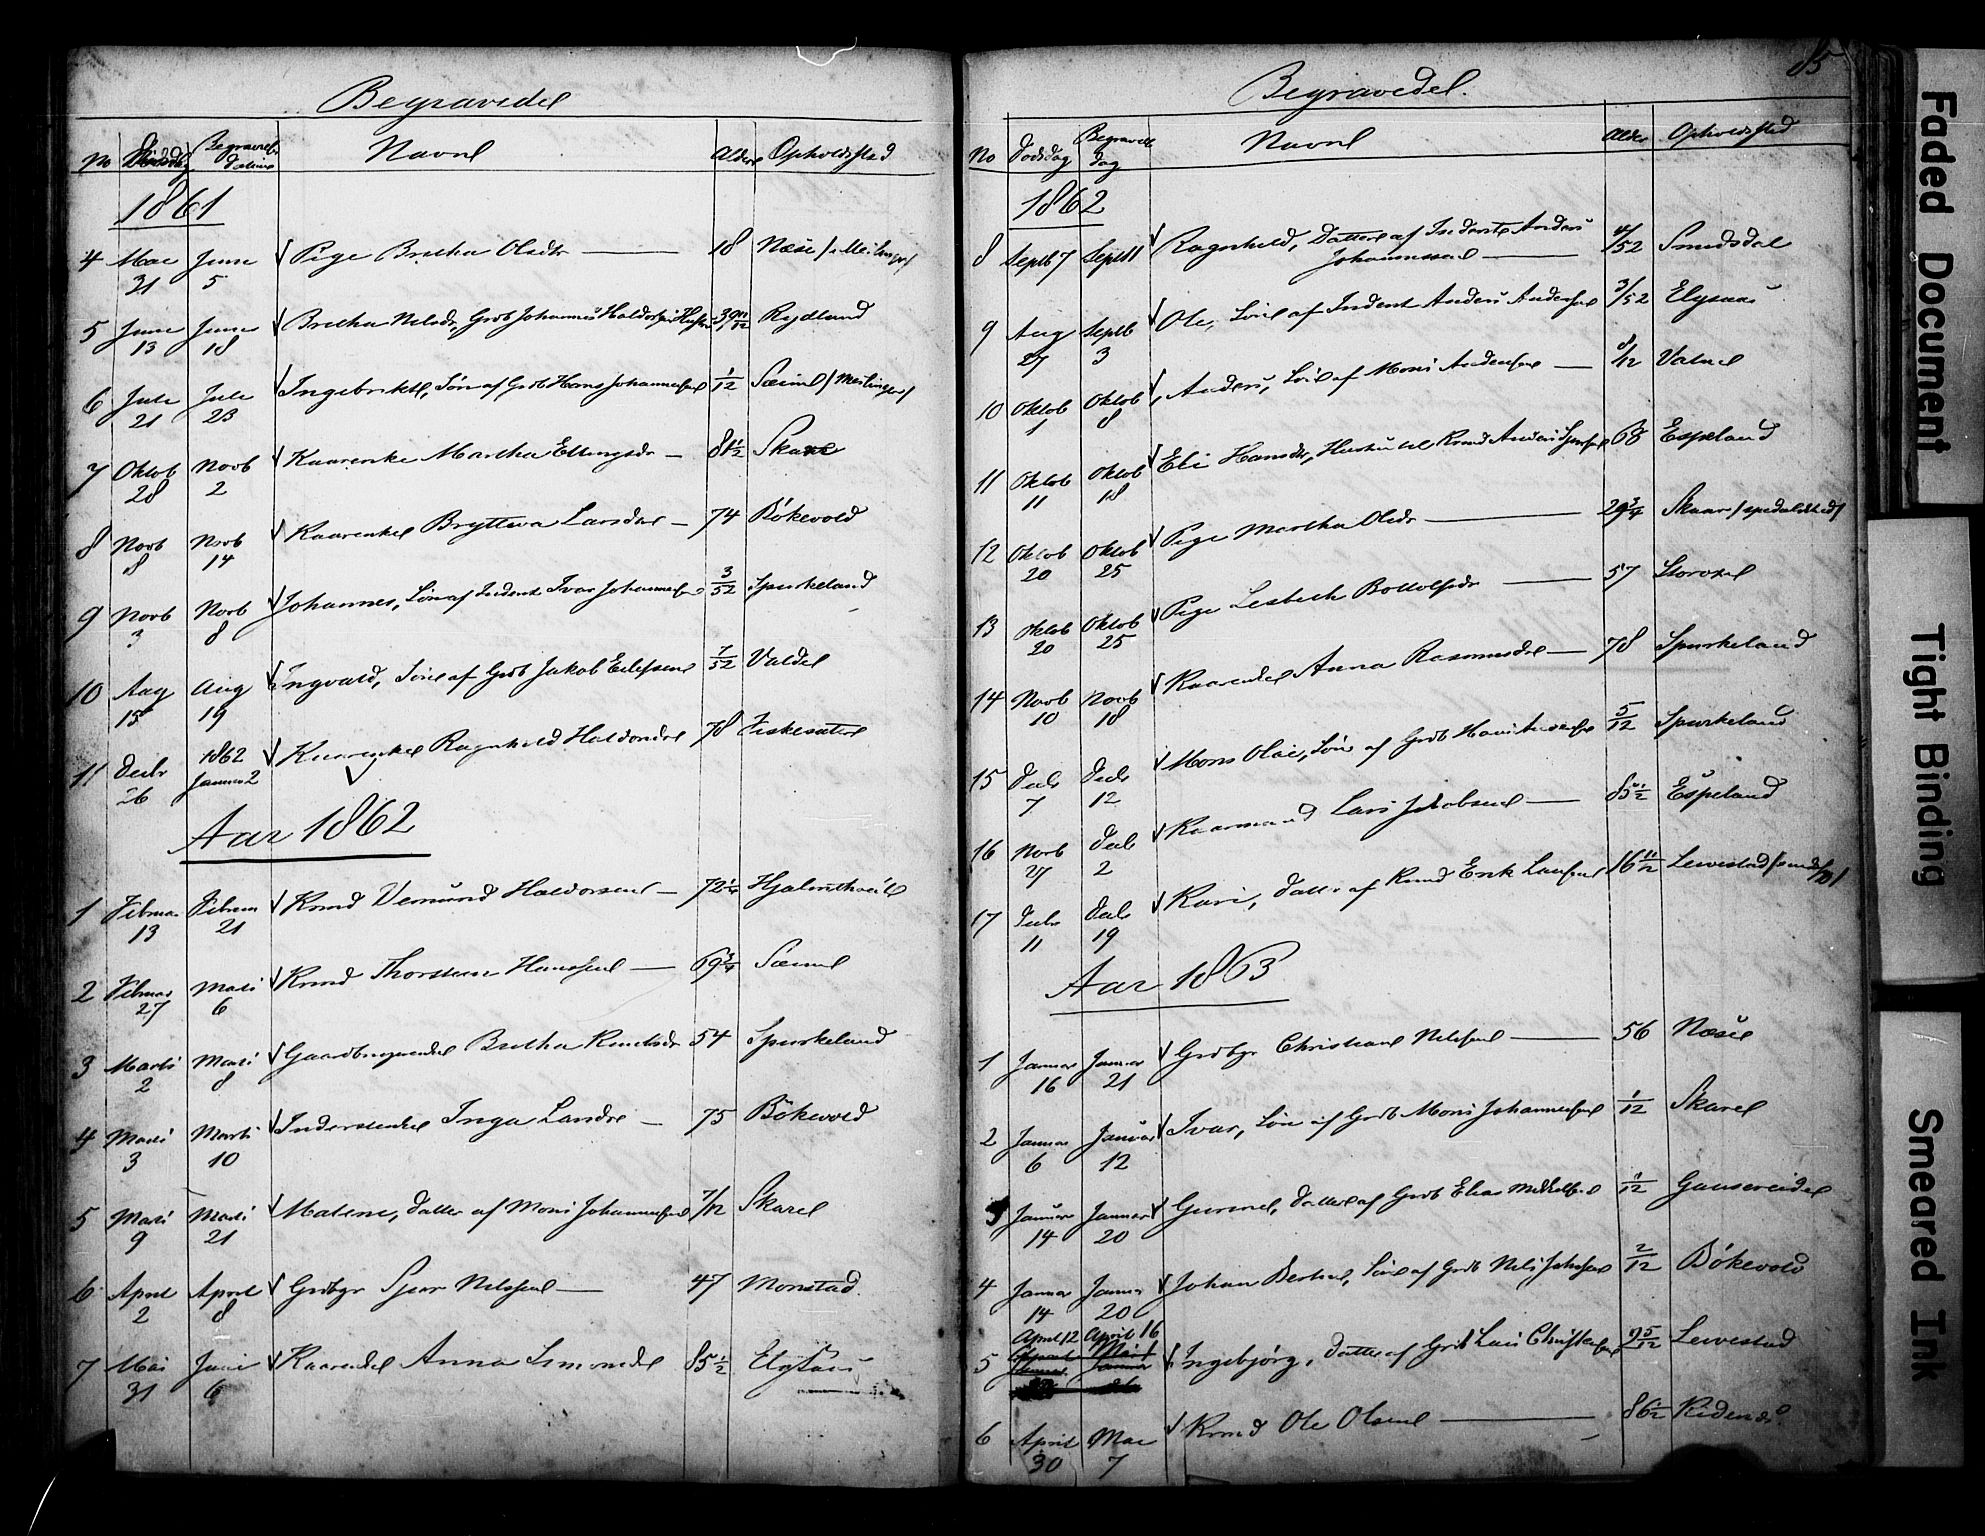 Begravede
No Dødsdag Begravelses Datum Navne Alder Opholdssted
1861
4 Mai 31 Juni 5 Pige Brithe Olsdtr 18 Næse /Meilinger/
5 Juni 13 Juni 18 Brithe Nilsdr, Grdb Johannes Haldorsens Hustru 39 11/12 Rydland
6 Juli 21 Juli 23 Ingebrikt, Søn af Grdb Hans Johannesen 1/12 Sæim /Meilinger/
7 Oktob 28 Novb 2 Kaarenke Martha Ellingsdr 81 1/2 Skare
8 Novb 8 Novb 14 Kaarenke Brytteva Larsdr 74 Bökevold
9 Novb 3 Novb 8 Johannes, Søn af Inderst Ivar Johannesen 3/52 Spurkeland
10 Aug 15 Aug 19 Ingvald, Søn af Grdb Jakob Eilefsen 7/52 Valde
11 Decbr 26 1862 Januar 2 Kaarenke Ragnhild Haldorsdr 78 Eskesæter
Aar 1862
1 Februar 13 Februar 21 Kmd Vemund Haldorsen 72 1/4 Hjelmtveit
2 Februar 27 Marts 6 Kmd Thorstein Hansen 69 3/4 Sæim
3 Marts 2 Marts 8 Gaardbrugerenke Brithe Knudsdr 54 Spurkeland
4 Marts 3 Marts 10 Inderstenke Inga Larsdr 75 Bökevold
5 Marts 9 Marts 21 Malene, Datter af Mons Johannesen 7/12 Skare
6 April 2 April 8 Grdbgr Sjur Nilssen 47 Monstad
7 Mai 31 Juni 6 Kaarenke Anna Simonsdr 85 1/2 Elvsaas
85
Begravede.
No Dödsdag Begravels dag Navne Alder Opholdssted
1862
8 Septb 7 Septb 11 Ragnhild, Datter af Inderste Anders Johannessen 4/52 Smedsdal
9 Aug 27 Septb 3 Ole, Søn af Inderst Anders Andersen 3/52 Elvsaas
10 Oktob 1 Oktob 8 Anders, Søn af Mons Andersen 8/12 Vatne
11 Oktob 11 Oktob 18 Eli Hansdr, Hustru til Kmd Anders Sjursen 68 Espeland
12 Oktob 20 Oktob 25 Pige Martha Olsdr 29 3/4 Skaar /spedalskhed/
13 Oktob 20 Oktob 25 Pige Lisbeth Bottolfsdr 57 Storset
14 Novb 10 Novb 18 Kaarenke Anna Rasmusdr 78 Spurkeland
15 Decbr 7 Decbr 12 Mons Olai, Søn af Grdb Hans Andersen 5/12 Spurkeland
16 Novb 27 Decbr 2 Kaarmand Lars Jakobsen 85 1/2 Espeland
17 Decbr 11 Decbr 19 Kari, Datter af Kmd Erik Larsen 16 11/12 Levestad
Aar 1863
1 Januar 16 Januar 21 Grdbgr Christian Nilssen 56 Næse
2 Januar 6 Januar 12 Ivar, Søn af Grdb Mons Johannesen 1/12 Skare
3 Januar 14 Januar 20 Gurine, Datter af Grdb Elias Mikkelsen 1/12 Gausereide
4 Januar 14 Januar 20 Johan Bertin, Søn af Grdb Nils Johnsen 2/12 Bökevold
5 April 12 April 16 Ingebjørg, Datter af Grdb Lars Christensen 9 5/12 Levestad
6 April 30 Mai 7 Kmd Ole Olsen 86 1/2
Faded Document
Tight Binding
Smeared Ink